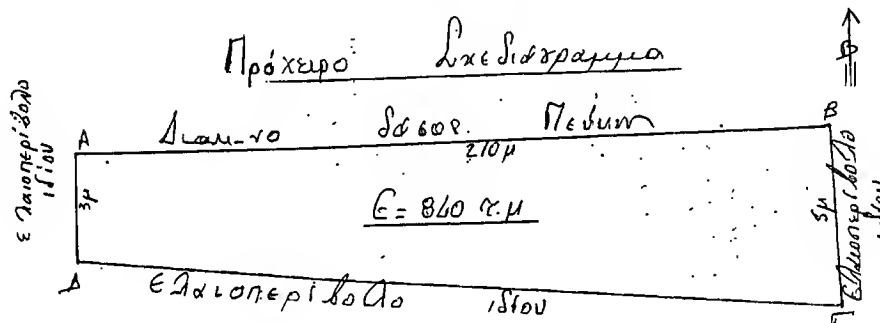 Πρόχειρο Σχεδιάγραμμα
Β
ελαιοπερίβολο
ιδίου
Α
Διακ-νο δάσος Πεύκη
Β
210μ
3μ
Ε = 840 τ.μ
5μ
Ελαιοπερίβολο
ιδίου
Δ
Ελαιοπερίβολο ιδίου
Γ